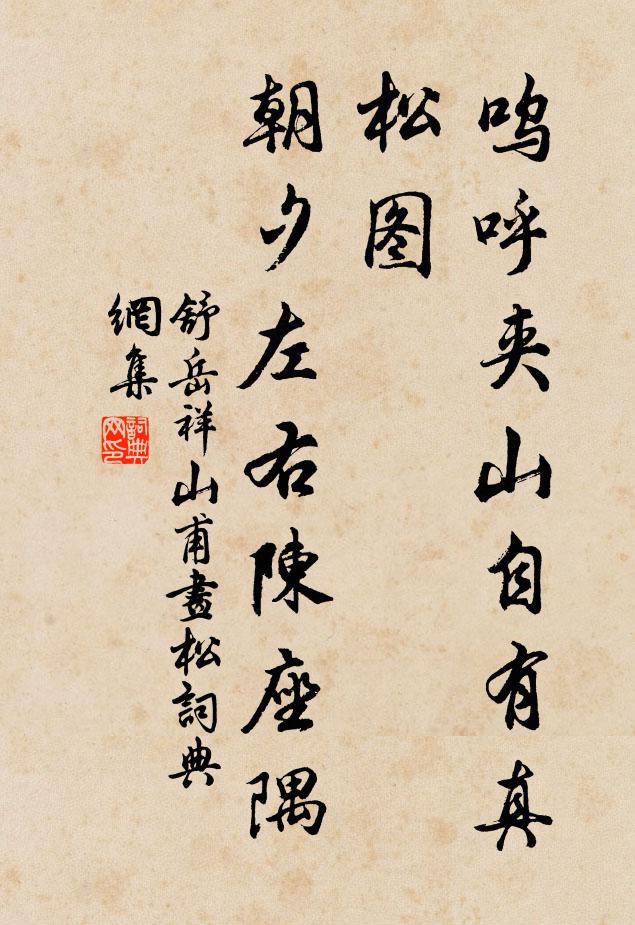 呜呼夹山自有真
松图
朝夕左右陳座隅
舒岳祥山甫畫松詞典
網集
詞典
网印